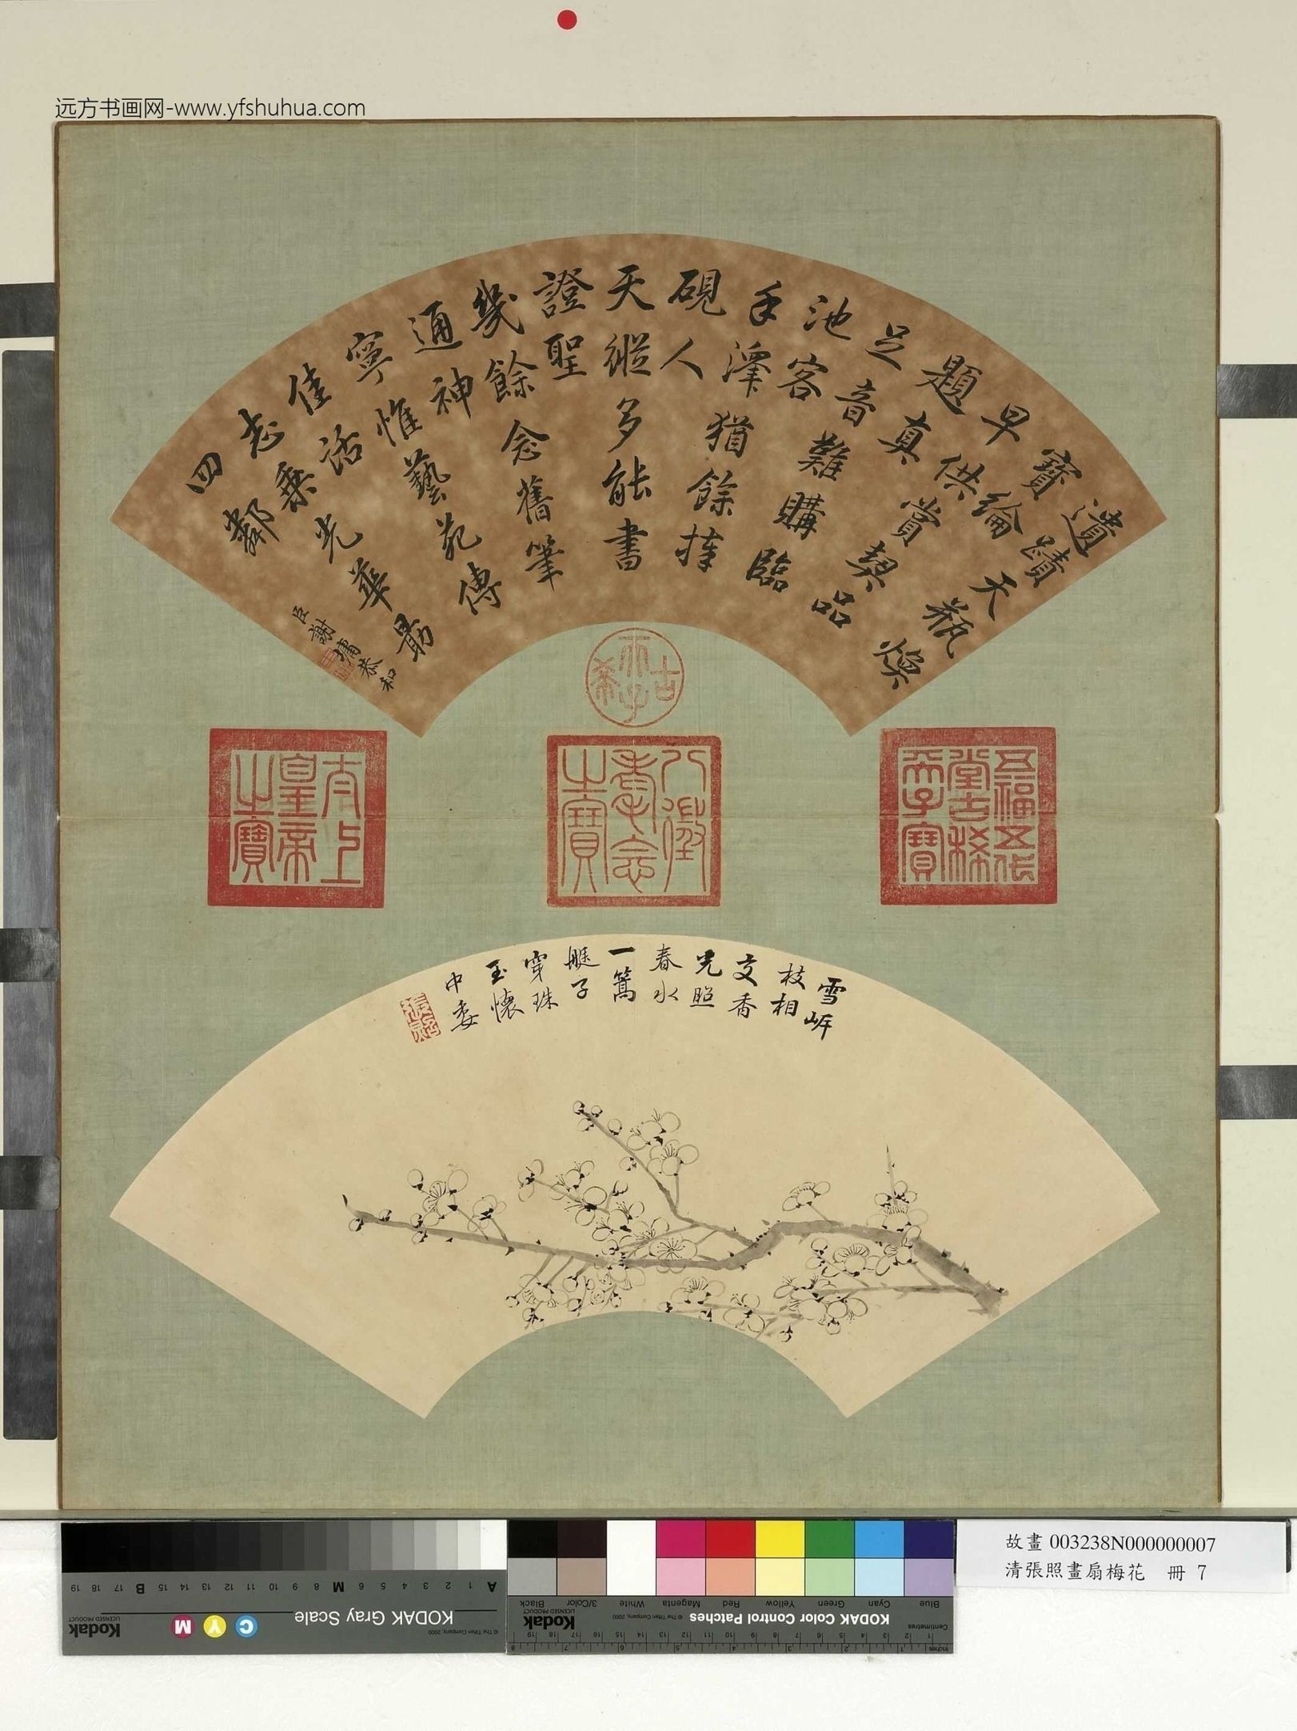 远方书画网-www.yfshuhua.com
遺蹟天瓶煥
寶綸
早供賞契品
題真
足音難購臨
池客
手澤猶餘捧
硯人
天縱多能書
證聖
幾餘念舊筆
通神
寧惟藝苑傳
佳話
志乘光華最
四鄰
臣謝墉恭和
古希天子
五福五代堂古稀天子寶
八徵耄念之寶
太上皇帝之寶
雪岸
枝相
交香
光照
春水
一篙
艇子
穿珠
玉懷
中委
張照
故畫 003238N000000007
清張照畫扇梅花 冊 7
KODAK Gray Scale
Kodak
LICENSED PRODUCT
C Y M
A 1 2 3 4 5 6 M 8 9 10 11 12 13 14 15 B 17 18 19
© The Tiffen Company, 2000
KODAK Color Control Patches
Kodak
LICENSED PRODUCT
© The Tiffen Company, 2000
Blue Cyan Green Yellow Red Magenta White 3/Color Black
Centimetres
Inches